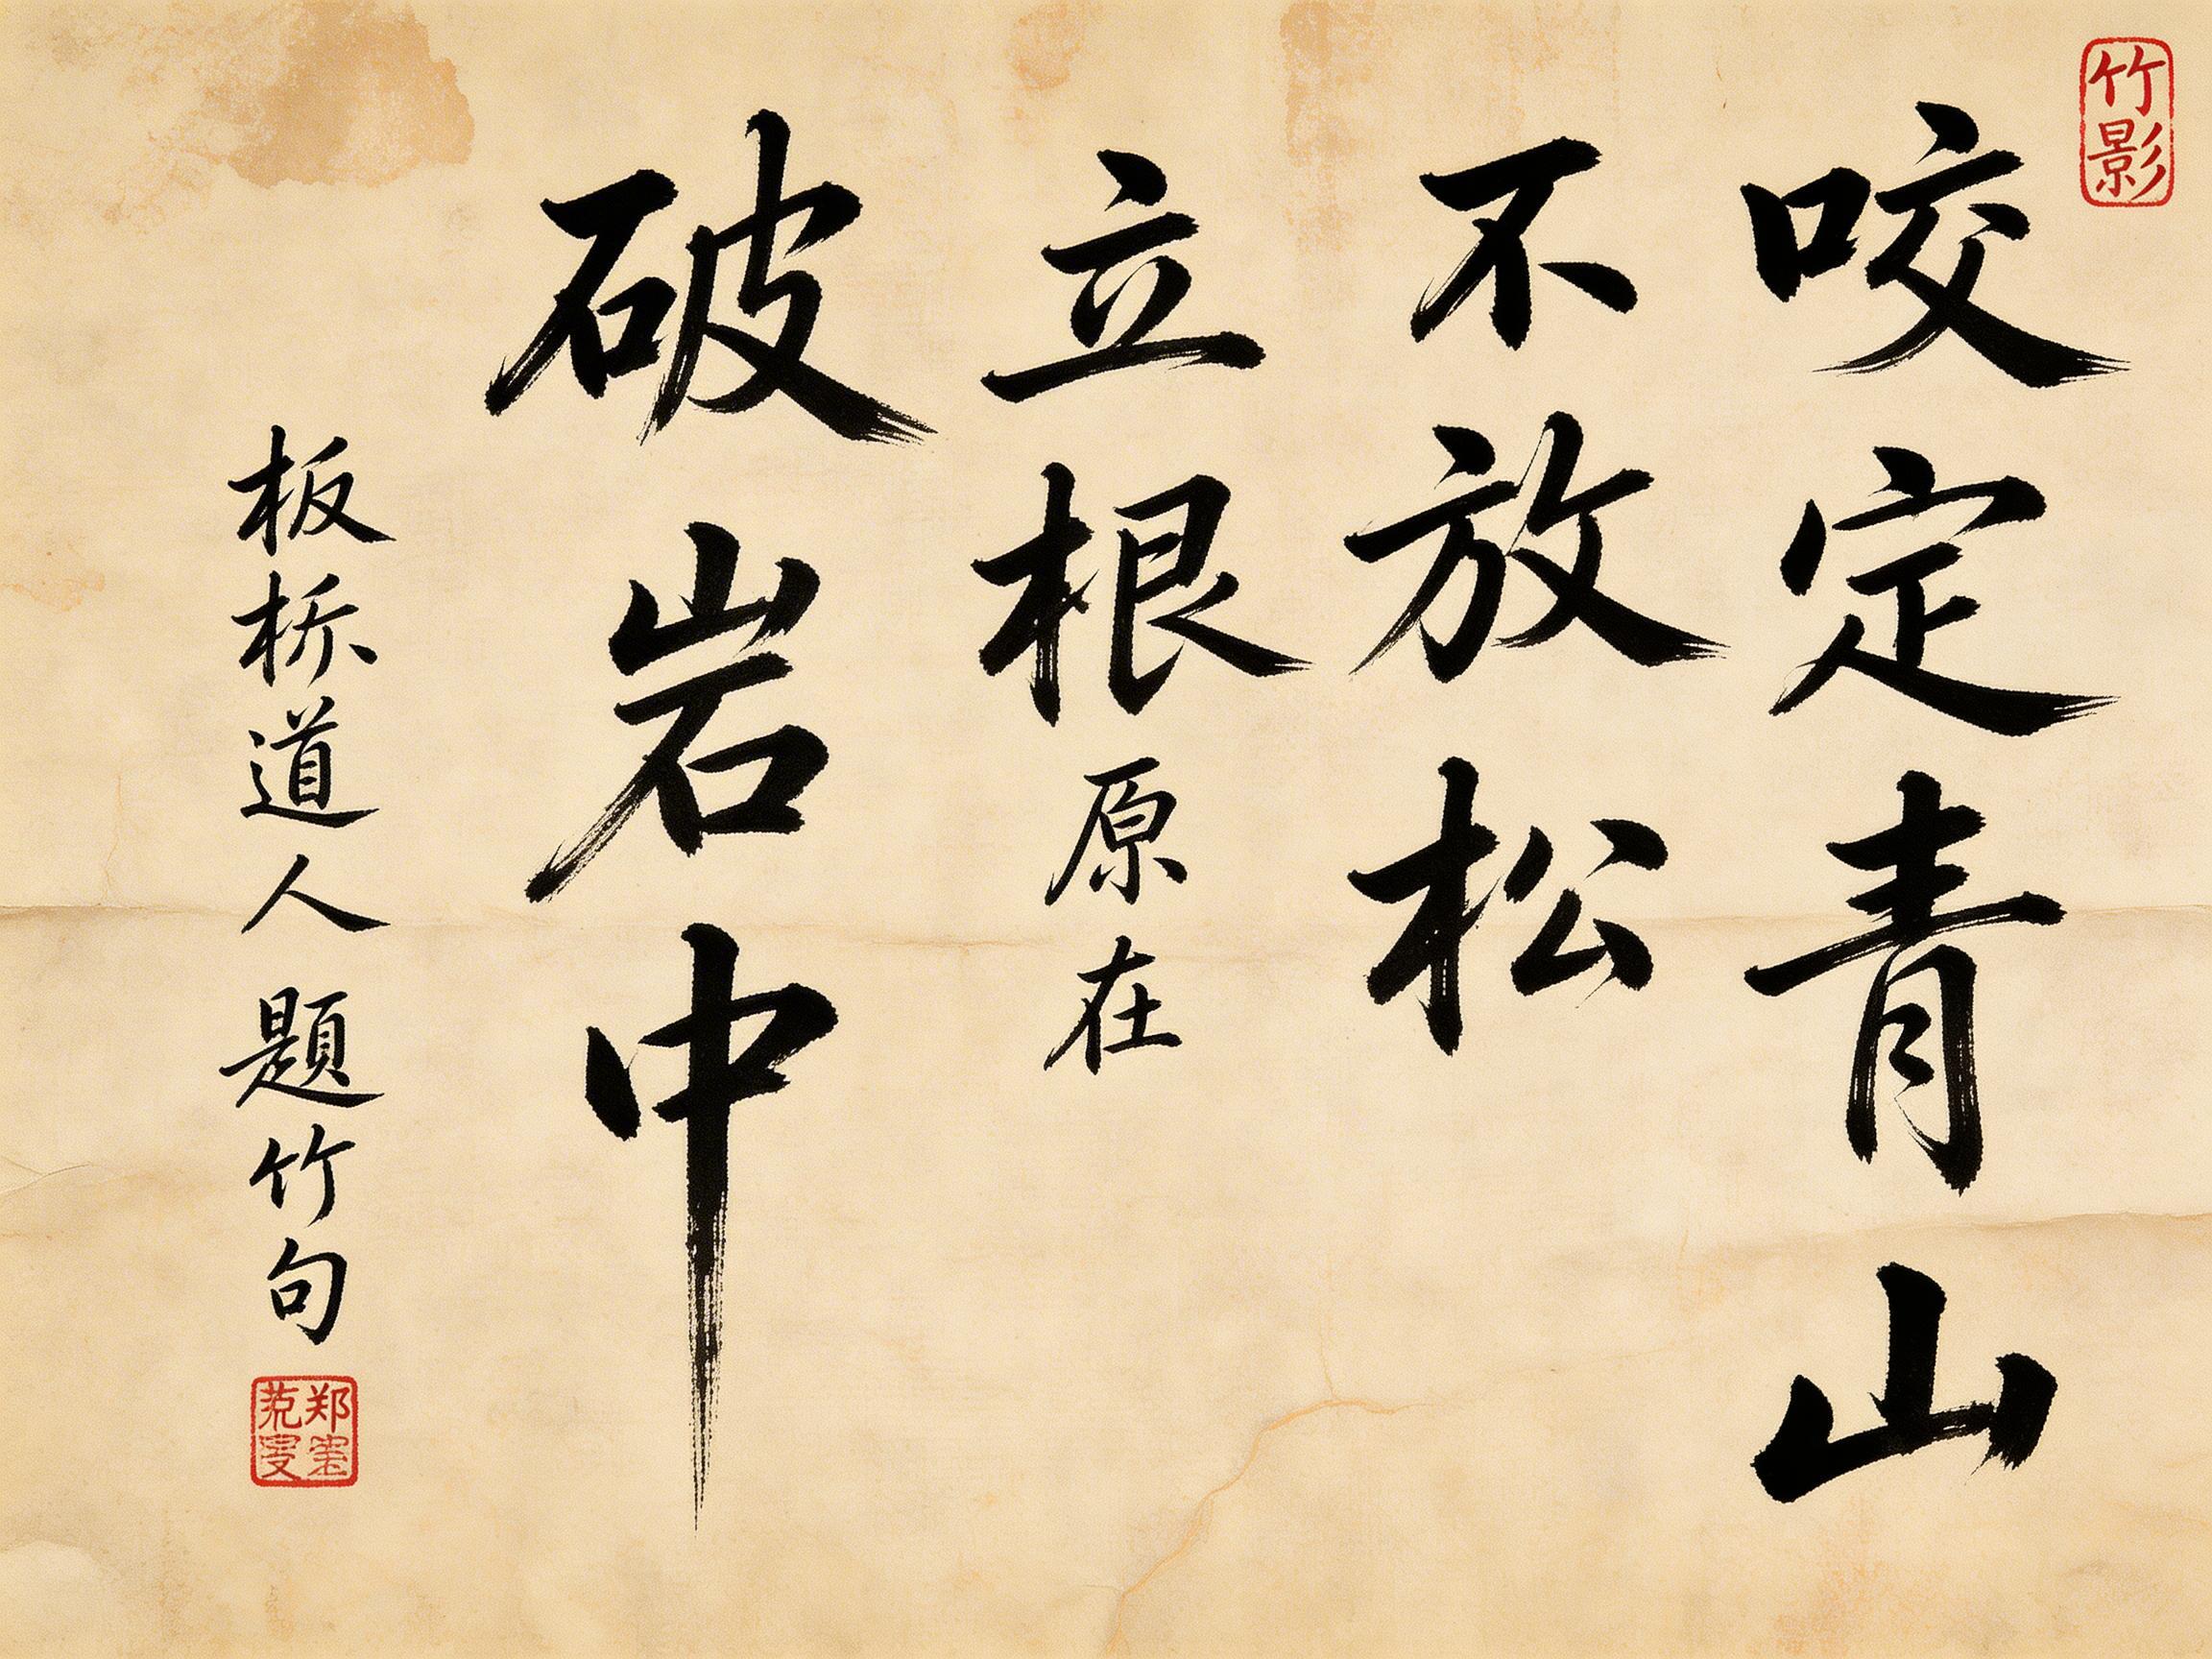 竹影
咬定青山
不放松
立根原在
破岩中
板桥道人题竹句
郑